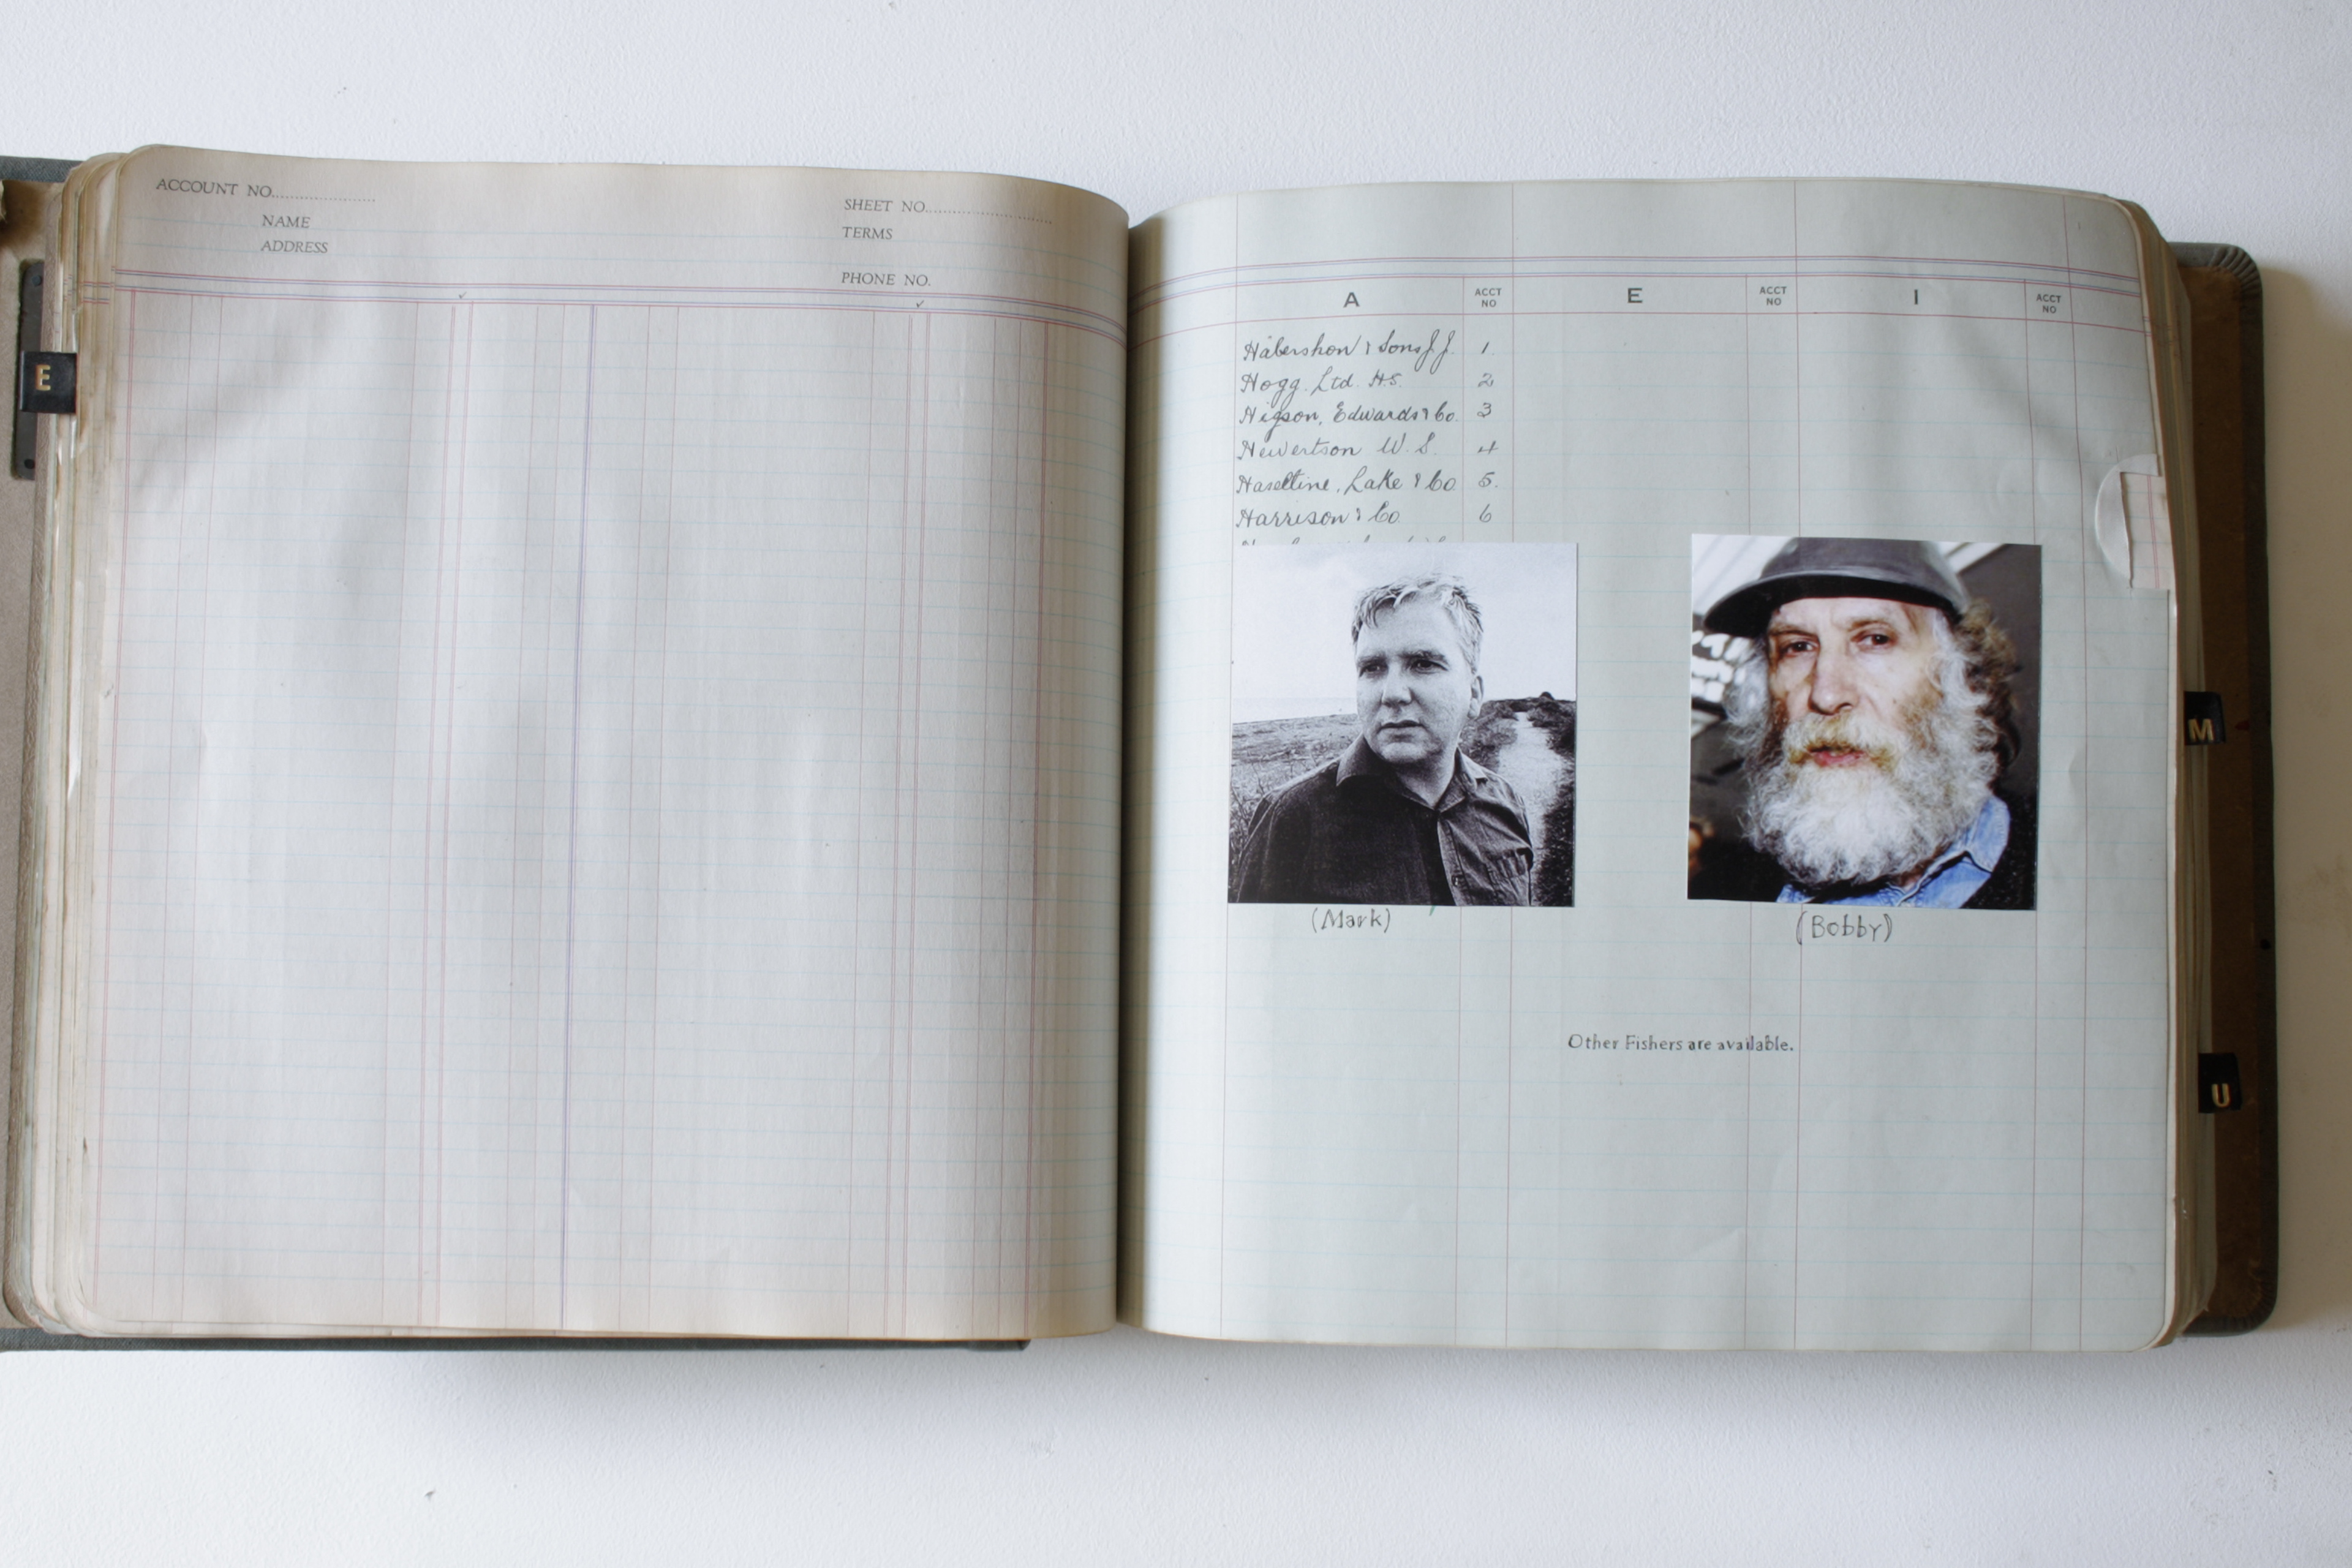 ACCOUNT NO.
NAME
ADDRESS
SHEET NO.
TERMS
PHONE NO.
E
A ACCT NO E ACCT NO I ACCT NO
Habershon & Sons J. J. 1.
Hogg. Ltd. H.S. 2
Higson, Edwards & Co. 3
Hewertson W. S. 4
Haseltine, Lake & Co 5.
Harrison & Co 6
(Mark)
(Bobby)
Other Fishers are available.
M
U